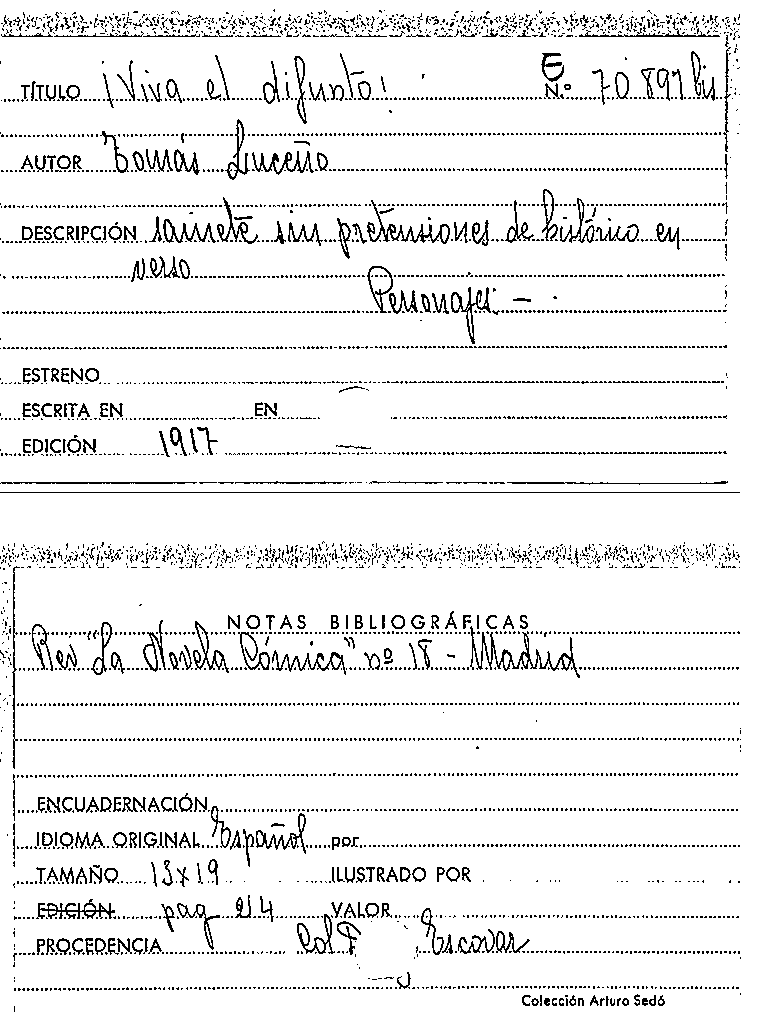 TÍTULO ¡Viva el difunto! E N.º 70897 bis
AUTOR Tomás Luceño
DESCRIPCIÓN sainete sin pretensiones de histórico en
verso
Personajes: -
ESTRENO
ESCRITA EN EN
EDICIÓN 1917
NOTAS BIBLIOGRÁFICAS
Rev "La Novela Cómica" nº 18 - Madrid
ENCUADERNACIÓN
IDIOMA ORIGINAL Español por
TAMAÑO 13x19 ILUSTRADO POR
EDICIÓN pag VALOR
PROCEDENCIA Col Escovar
Colección Arturo Sedó